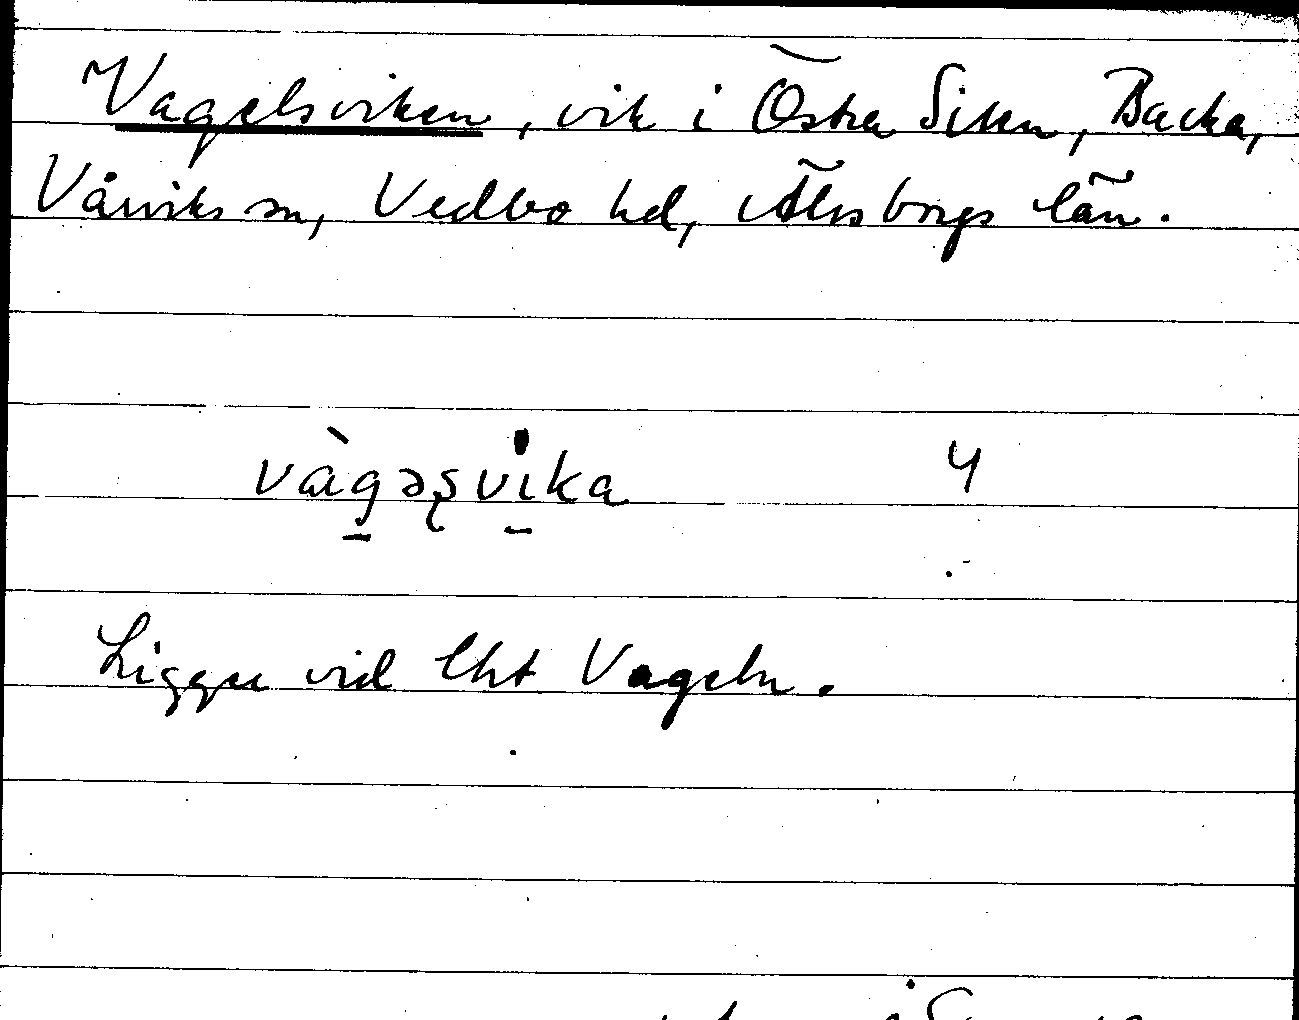 Vagelsviken, vik i Östra Silen, Backa,
Vårviks sn, Vedbo hd, Älvsborgs län.
vàgəʂvi̍ka 4
Ligger vid Vageln.